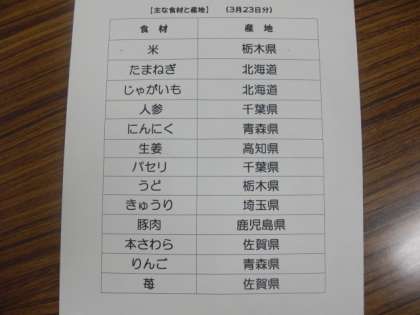 【主な食材と産地】 (3月23日分)
食材 産地
米 栃木県
たまねぎ 北海道
じゃがいも 北海道
人参 千葉県
にんにく 青森県
生姜 高知県
パセリ 千葉県
うど 栃木県
きゅうり 埼玉県
豚肉 鹿児島県
本さわら 佐賀県
りんご 青森県
苺 佐賀県